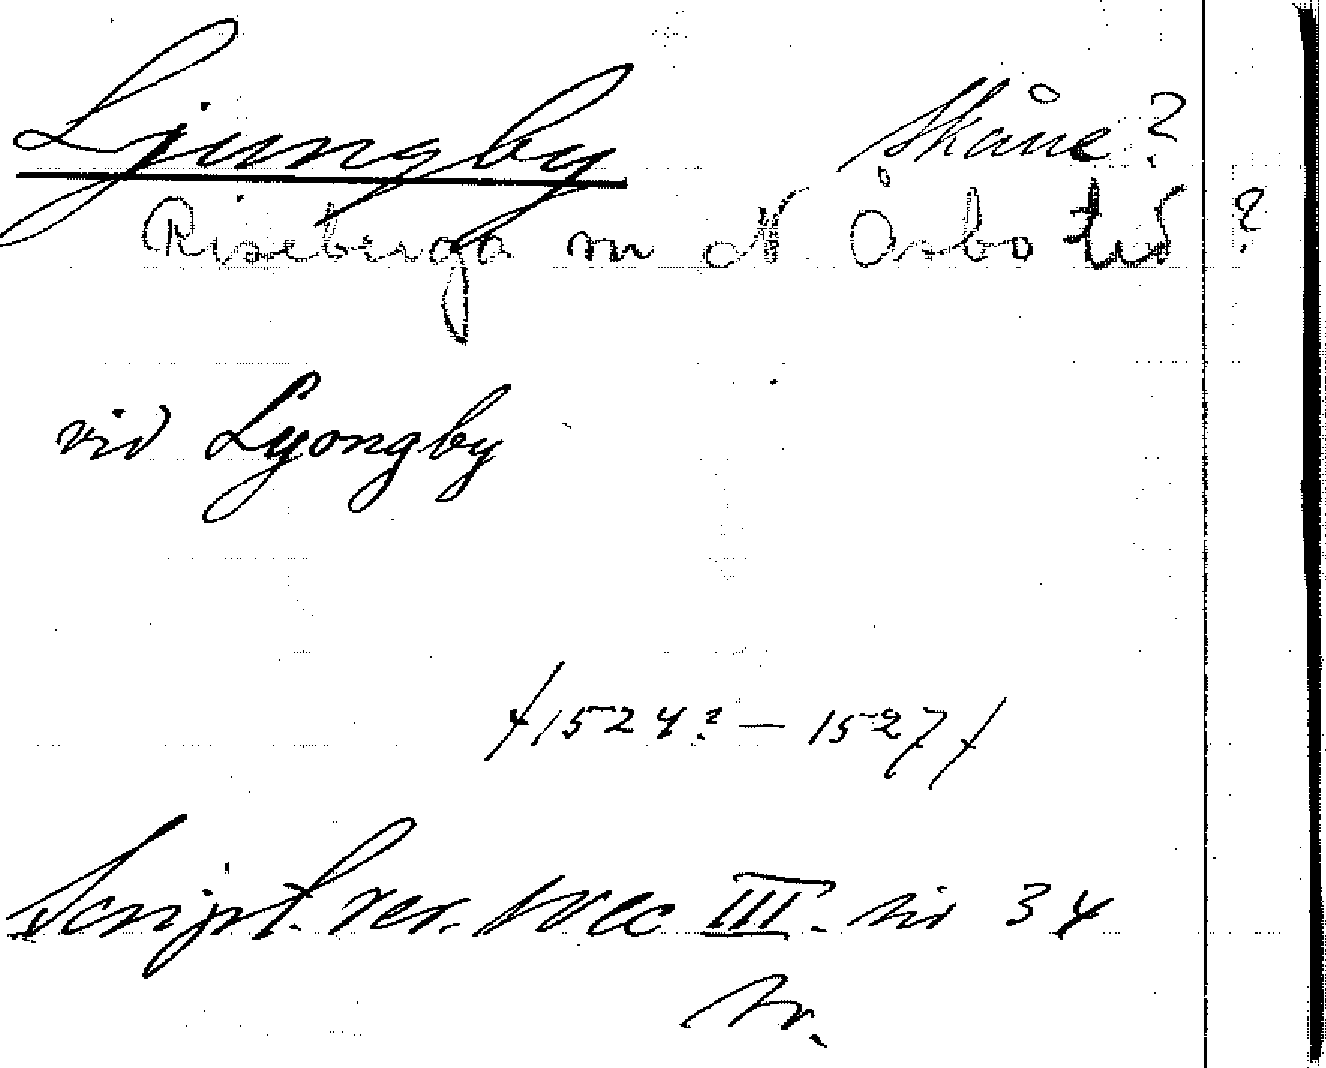 Ljungby Skåne?
Riseberga sn N Åsbo hd ?
vid Lyongby
/1524? — 1527/
Script. rer. svec III. sid 34